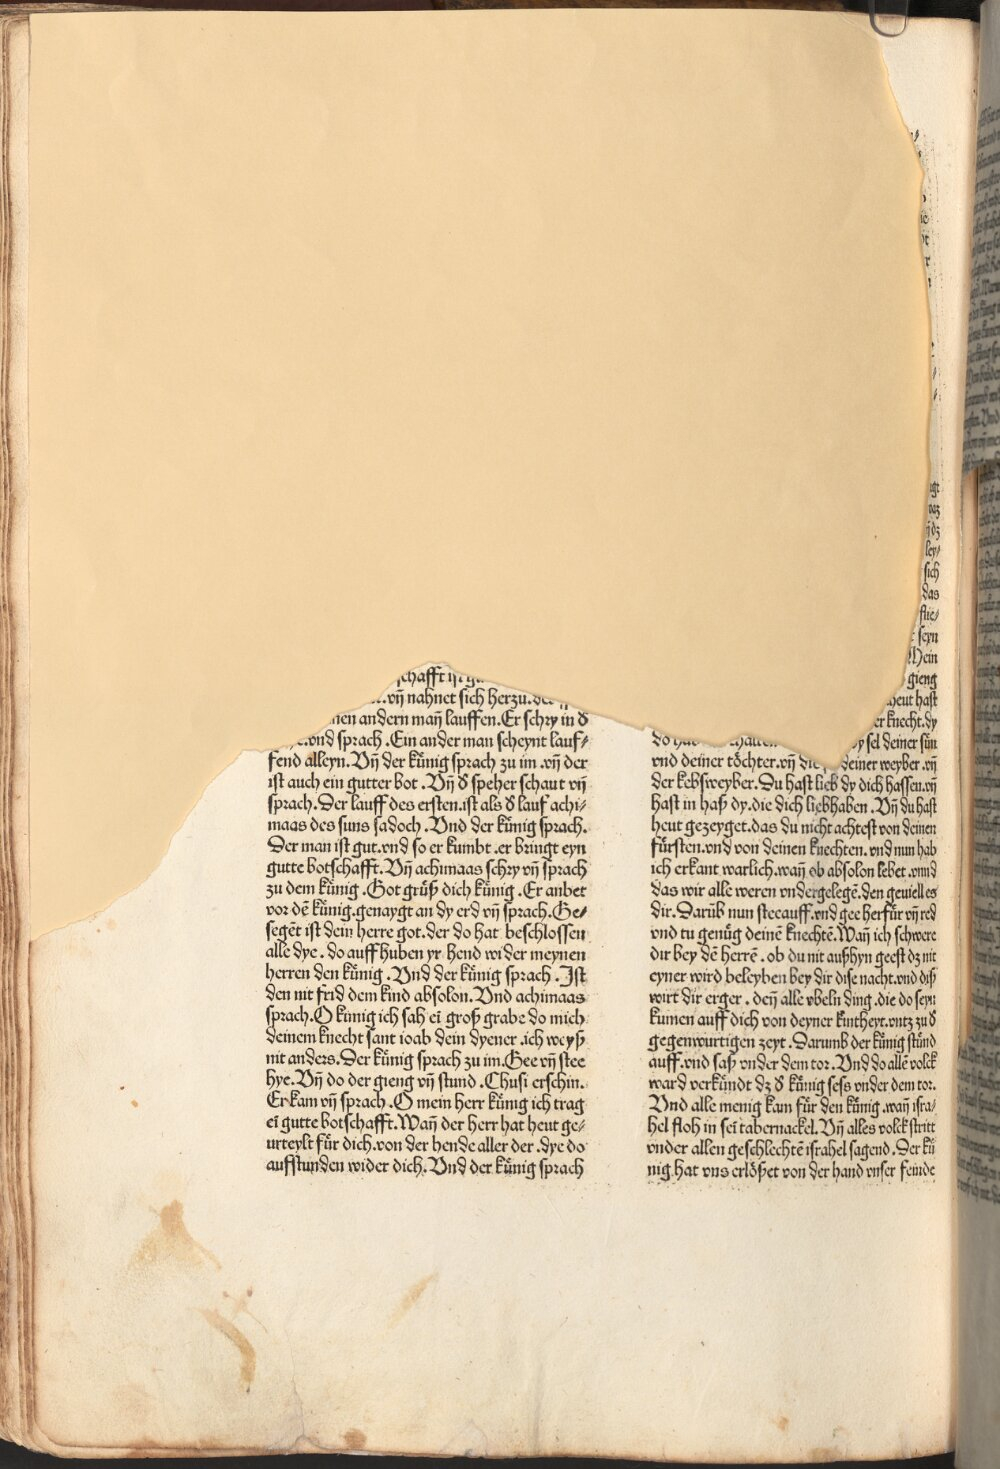 schafft ist
vn̄ nahnet sich herzu.
andern man̄ lauffen. Er schry in d
vnd sprach. Ein ander man scheynt lauf⸗
fend alleyn. Vn̄ der künig sprach zu im. vn̄ der
ist auch ein gutter bot. Vn̄ d speher schaut vn̄
sprach. Der lauff des ersten. ist als d lauf achi⸗
maas des suns sadoch. Vnd der künig sprach.
Der man ist gut. vnd so er kumbt. er bringt eyn
gutte botschafft. Vn̄ achimaas schry vn̄ sprach
zu dem künig. Got grüß dich künig. Er anbet
vor dē künig. genaygt an dy erd vn̄ sprach. Ge⸗
segēt ist dein herre got. der do hat beschlossen
alle dye. do auff huben yr hend wider meynen
herren den künig. Vnd der künig sprach. Ist
den nit frid dem kind absolon. Vnd achimaas
sprach. O künig ich sah eī groß grabe do mich
deinem knecht sant ioab dein dyener. ich weyß
nit anders. Der künig sprach zu im. Gee vn̄ stee
hye. Vn̄ do der gieng vn̄ stund. Chusi erschin.
Er kam vn̄ sprach. O mein herr künig ich trag
eī gutte botschafft. Wan̄ der herr hat heut ge⸗
urteylt für dich. von der hende aller der. dye do
auffstunden wider dich. Vnd der künig sprach
ley⸗
sich
das
flie⸗
seyn
Mein
gieng
heut hast
knecht. dy
sel deiner sün
vnd deiner töchter. vn̄ deiner weyber. vn̄
der kebsweyber. Du hast lieb dy dich hassen. vn̄
hast in haß dy. die dich liebhaben. Vn̄ du hast
heut gezeyget. das du nicht achtest von deinen
fürsten. vnd von deinen knechten. vnd nun hab
ich erkant warlich. wan̄ ob absolon lebet. vnnd
das wir alle weren vndergelegē. den geuiel es
dir. Darüb nun stee auff. vnd gee herfür vn̄ red
vnd tu genüg deinē knechtē. Wan̄ ich schwere
dir bey dē herrē. ob du nit außhyn geest dz nit
eyner wird beleyben bey dir dise nacht. vnd diß
wirt dir erger. den̄ alle vbeln ding. die do seyn
kumen auff dich von deyner kintheyt. vntz zu d
gegenwurtigen zeyt. Darumb der künig stünd
auff. vnd saß vnder dem tor. Vnd do allē volck
ward verkündt dz d künig sess vnder dem tor.
Vnd alle menig kam für den künig. wan̄ isra⸗
hel floh in seī tabernackel. Vn̄ alles volck stritt
vnder allen geschlechtē israhel sagend. Der kü
nig hat vns erlößet von der hand vnser feinde